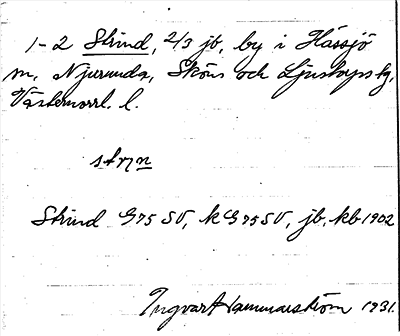 1-2 Strind, 2/3 jb, by i Hässjö
m, Njurunda, Sköns och Ljustorps tg,
Västernorrl. l.
Strind G75 SV, k G75 SV, jb, kb 1902
Ingvar Hammarström 1931.